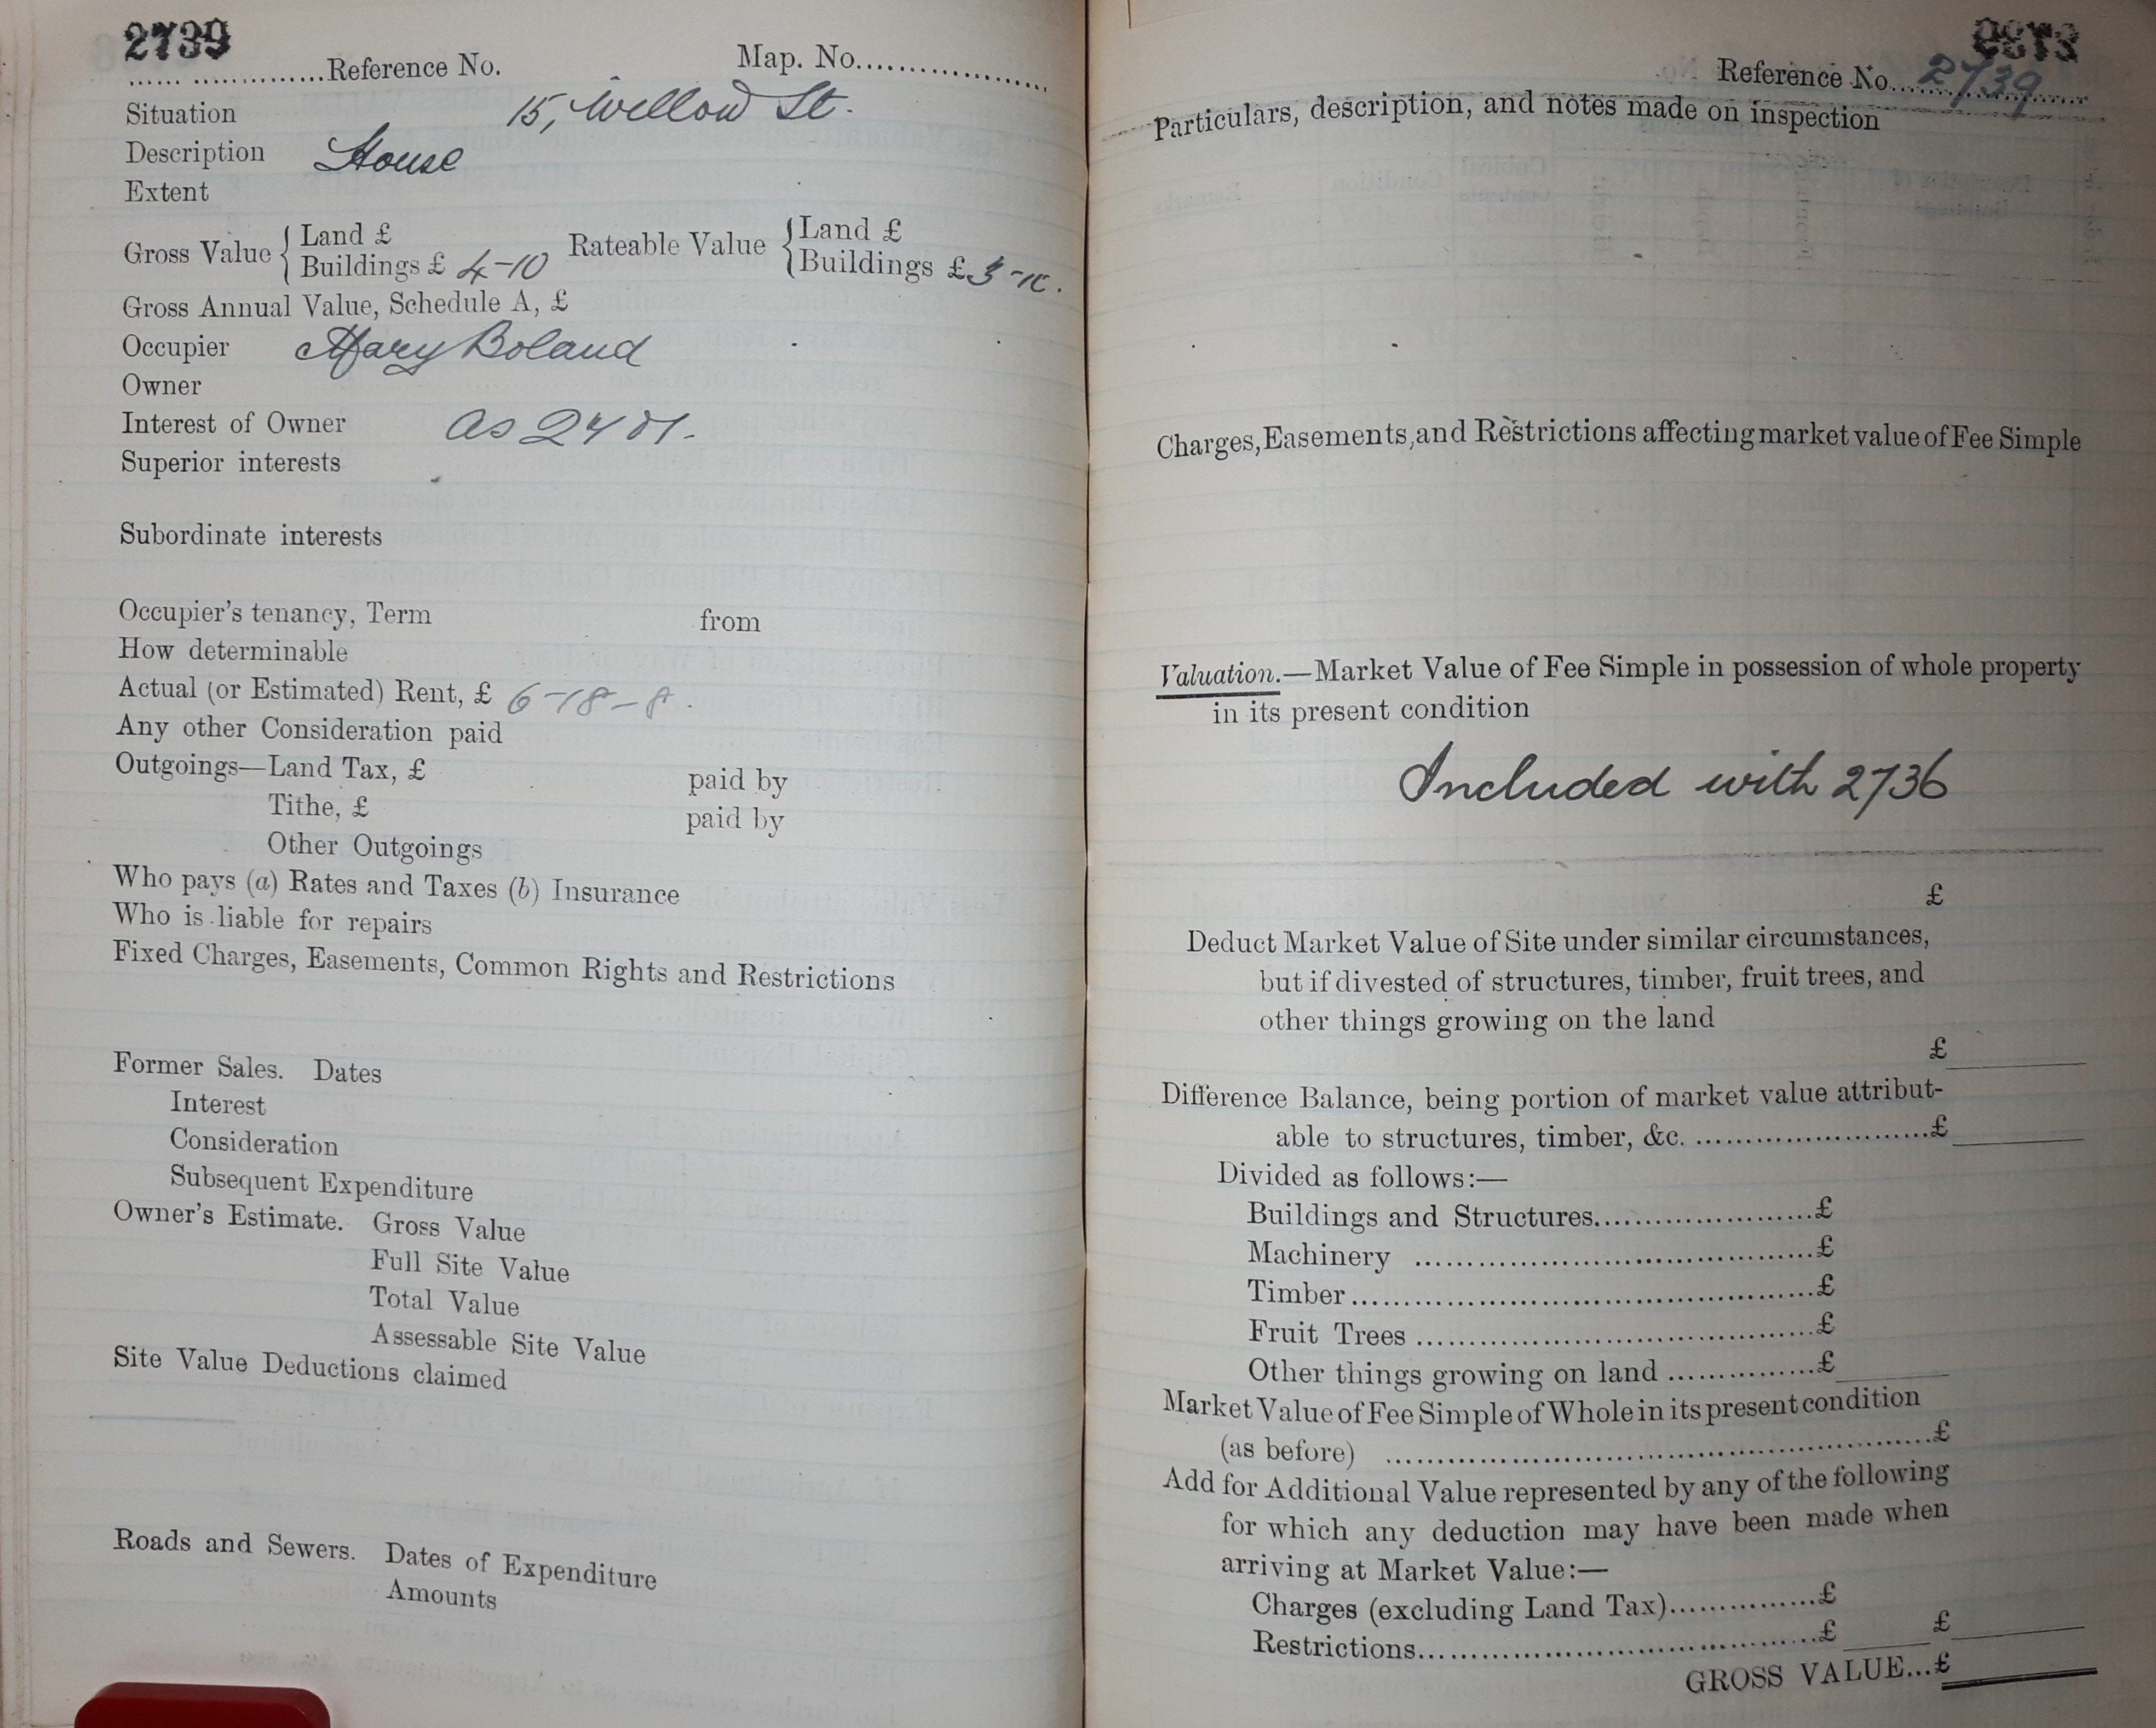 2739
...... ...............Reference No. Map. No.......................
Situation 15, Willow St.
Description House
Extent
Gross Value { Land £ Rateable Value { Land £
Buildings £ 4-10 Buildings £ 3-10.
Gross Annual Value, Schedule A, £
Occupier Mary Boland
Owner
Interest of Owner as
Superior interests
Subordinate interests
Occupier's tenancy, Term from
How determinable
Actual (or Estimated) Rent, £ 6-18-8.
Any other Consideration paid
Outgoings—Land Tax, £ paid by
Tithe, £ paid by
Other Outgoings
Who pays (a) Rates and Taxes (b) Insurance
Who is liable for repairs
Fixed Charges, Easements, Common Rights and Restrictions
Former Sales. Dates
Interest
Consideration
Subsequent Expenditure
Owner's Estimate. Gross Value
Full Site Value
Total Value
Assessable Site Value
Site Value Deductions claimed
Roads and Sewers. Dates of Expenditure
Amounts
Reference No. 2739
Particulars, description, and notes made on inspection
Charges, Easements, and Restrictions affecting market value of Fee Simple
Valuation.—Market Value of Fee Simple in possession of whole property
in its present condition
Included with 2736
£
Deduct Market Value of Site under similar circumstances,
but if divested of structures, timber, fruit trees, and
other things growing on the land
£
Difference Balance, being portion of market value attribut-
able to structures, timber, &c. ...........................£
Divided as follows:—
Buildings and Structures........................£
Machinery ..........................................£
Timber.................................................£
Fruit Trees ..........................................£
Other things growing on land ...............£
Market Value of Fee Simple of Whole in its present condition
(as before) ..........................................................£
Add for Additional Value represented by any of the following
for which any deduction may have been made when
arriving at Market Value:—
Charges (excluding Land Tax)...............£
Restrictions..........................................£ £
GROSS VALUE...£